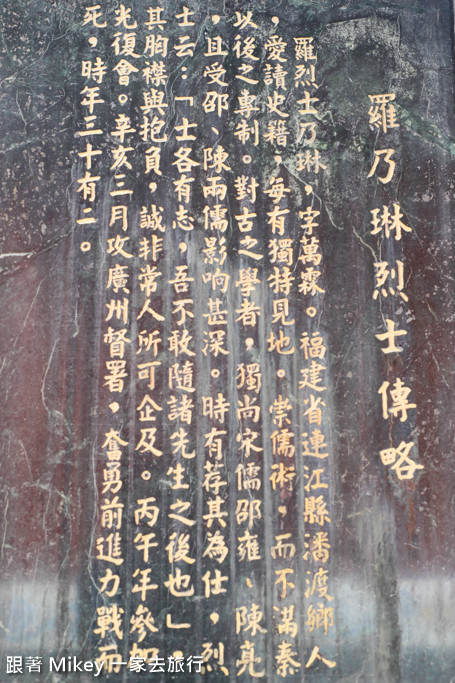 羅乃琳烈士傳略
羅烈士乃琳，字萬霖。福建省連江縣潘渡鄉人
，愛讀史籍，每有獨特見地。崇儒術，而不滿秦
以後之專制。對古之學者，獨尚宋儒邵雍、陳亮
，且受邵、陳兩儒影响甚深。時有荐其為仕，烈
士云：「士各有志，吾不敢隨諸先生之後也」，
其胸襟與抱負，誠非常人所可企及。丙午年參加
光復會。辛亥三月攻廣州督署，奮勇前進力戰而
死，時年三十有二。
跟著 Mikey 一家去旅行